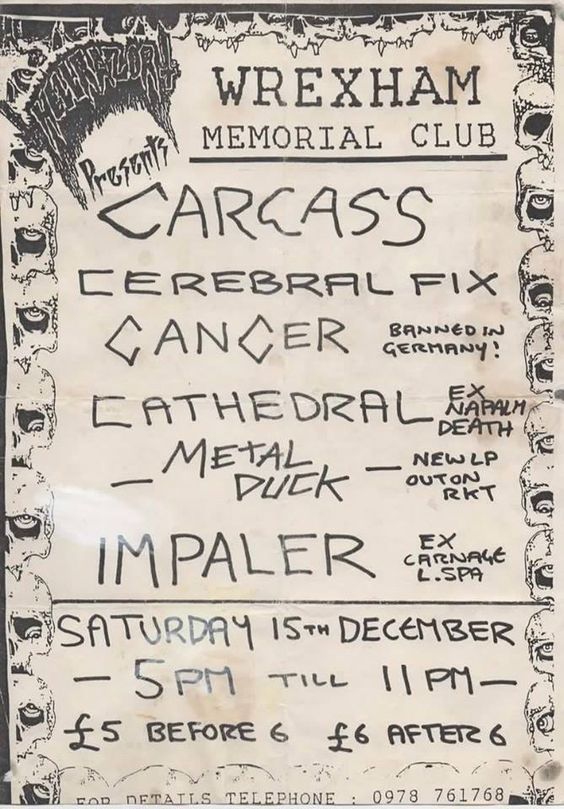 Presents
WREXHAM
MEMORIAL CLUB
CARCASS
CEREBRAL FIX
CANCER BANNED IN
GERMANY!
CATHEDRAL EX
NAPALM
DEATH
— METAL
DUCK — NEW LP
OUT ON
RKT
IMPALER EX
CARNAGE
L.SPA
SATURDAY 15TH DECEMBER
— 5PM TILL 11PM —
£5 BEFORE 6 £6 AFTER 6
FOR DETAILS TELEPHONE : 0978 761768